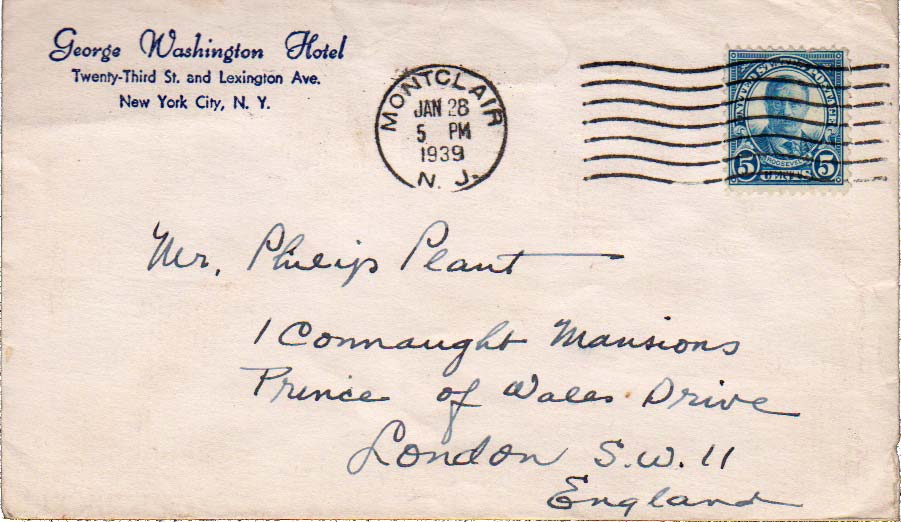 George Washington Hotel
Twenty-Third St. and Lexington Ave.
New York City, N. Y.
MONTCLAIR
JAN 28
5 PM
1939
N. J.
UNITED STATES POSTAGE
ROOSEVELT
5 CENTS 5
Mr. Philip Plant
1 Connaught Mansions
Prince of Wales Drive
London S.W. 11
England